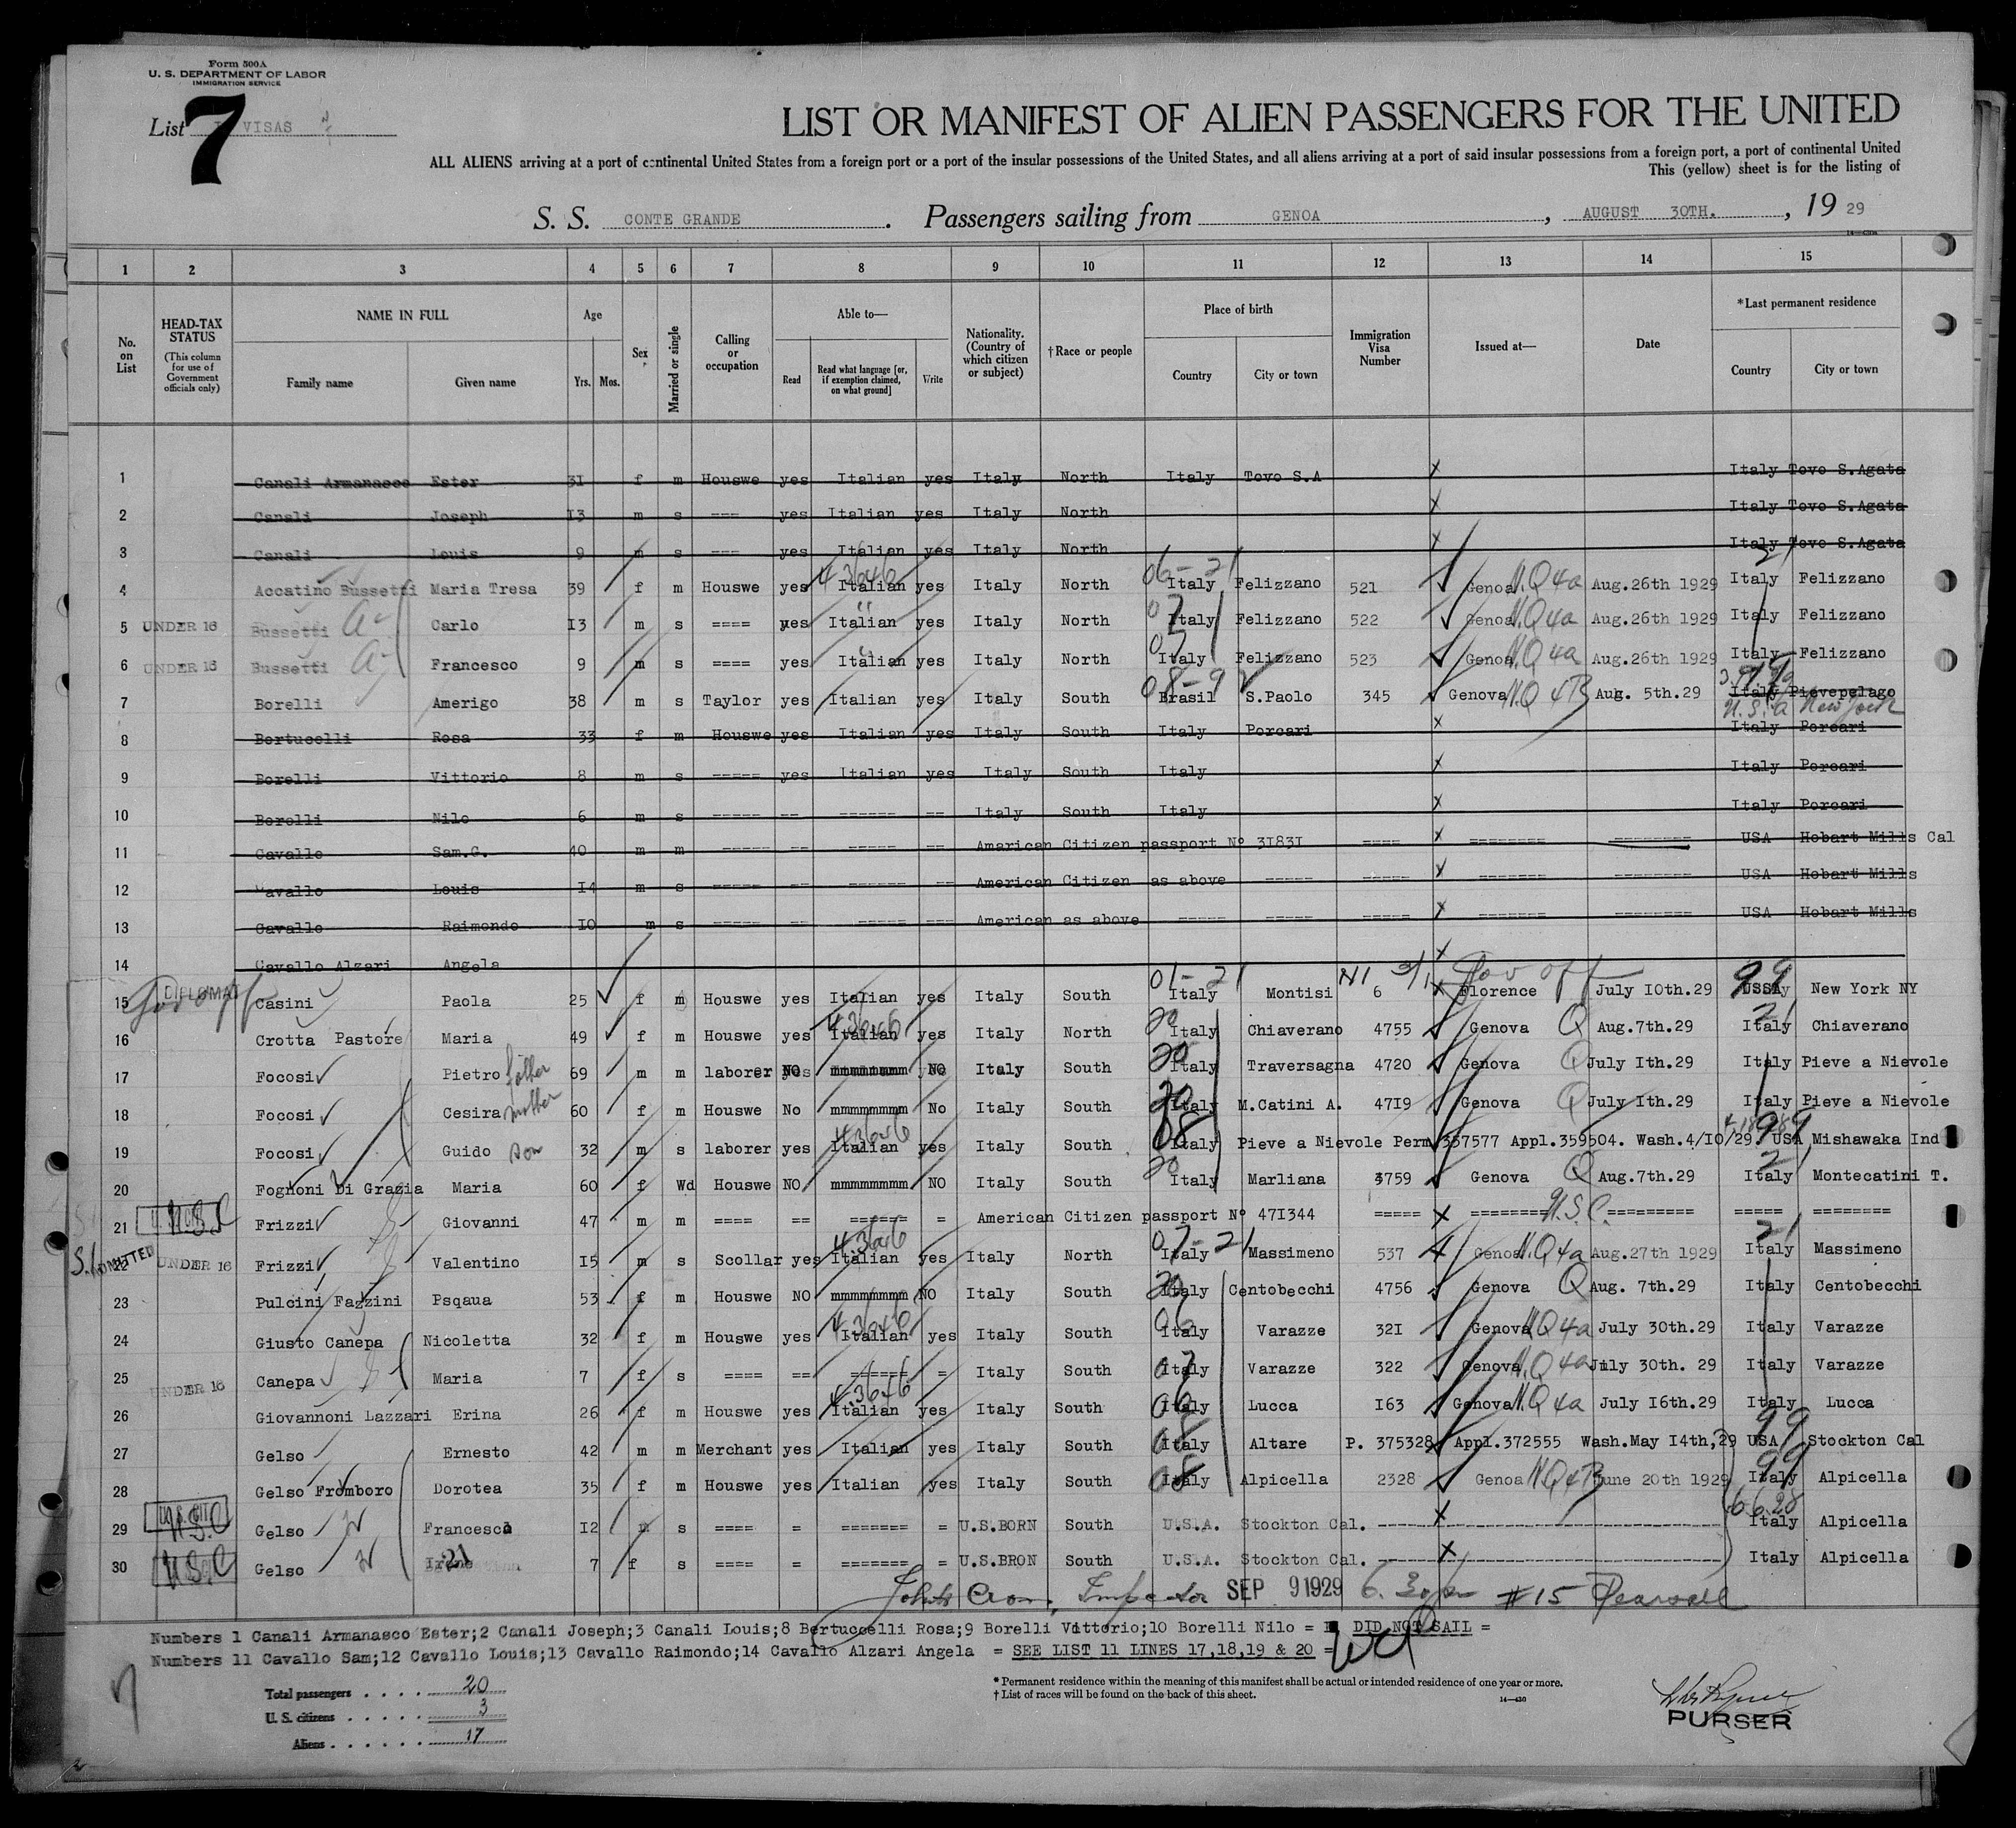 Form 500A
U. S. DEPARTMENT OF LABOR
IMMIGRATION SERVICE
List VISAS
7
LIST OR MANIFEST OF ALIEN PASSENGERS FOR THE UNITED
ALL ALIENS arriving at a port of continental United States from a foreign port or a port of the insular possessions of the United States, and all aliens arriving at a port of said insular possessions from a foreign port, a port of continental United
This (yellow) sheet is for the listing of
S. S. CONTE GRANDE. Passengers sailing from GENOA, AUGUST 30TH., 19 29
1 2 3 4 5 6 7 8 9 10 11 12 13 14 15
No. on List
HEAD-TAX STATUS
(This column for use of Government officials only)
NAME IN FULL
Family name Given name
Age
Yrs. Mos.
Sex
Married or single
Calling or occupation
Able to—
Read
Read what language [or, if exemption claimed, on what ground]
Write
Nationality. (Country of which citizen or subject)
†Race or people
Place of birth
Country City or town
Immigration Visa Number
Issued at—
Date
*Last permanent residence
Country City or town
1 Canali Armanasco Ester 31 f m Houswe yes Italian yes Italy North Italy Tovo S.A x Italy Tovo S.Agata
2 Canali Joseph 13 m s --- yes Italian yes Italy North x Italy Tovo S.Agata
3 Canali Louis 9 m s --- yes Italian yes Italy North x Italy Tovo S.Agata
4 Accatino Bussetti Maria Tresa 39 f m Houswe yes Italian yes Italy North Italy Felizzano 521 Genoa N.Q 4a Aug.26th 1929 Italy Felizzano
5 UNDER 16 Bussetti Carlo 13 m s ==== yes Italian yes Italy North Italy Felizzano 522 Genoa N.Q 4a Aug.26th 1929 Italy Felizzano
6 UNDER 16 Bussetti Francesco 9 m s ==== yes Italian yes Italy North Italy Felizzano 523 Genoa N.Q 4a Aug.26th 1929 Italy Felizzano
7 Borelli Amerigo 38 m s Taylor yes Italian yes Italy South Brasil S.Paolo 345 Genova N.Q 4B Aug. 5th.29 Italy Pievepelago
U.S.a New York
8 Bertucelli Rosa 33 f m Houswe yes Italian yes Italy South Italy Porcari x Italy Porcari
9 Borelli Vittorio 8 m s ----- yes Italian yes Italy South Italy x Italy Porcari
10 Borelli Nilo 6 m s ----- -- ------ -- Italy South Italy x Italy Porcari
11 Cavallo Sam.G. 40 m m ----- -- ----- -- American Citizen passport Nº 31831 ---- x -------- -------- USA Hobart Mills Cal
12 Cavallo Louis 14 m s ----- -- ------ -- American Citizen as above ----- ----- x ------- -------- USA Hobart Mills
13 Cavallo Raimondo 10 m s ----- -- ----- --- American as above ----- ----- ----- x ------- -------- USA Hobart Mills
14 Cavallo Alzari Angela x
15 DIPLOMAT Casini Paola 25 f m Houswe yes Italian yes Italy South Italy Montisi 6 x Florence July 10th.29 New York NY
16 Crotta Pastore Maria 49 f m Houswe yes Italian yes Italy North Italy Chiaverano 4755 Genova Q Aug.7th.29 Italy Chiaverano
17 Focosi Pietro father 69 m m laborer NO mmmmmmmm NO Italy South Italy Traversagna 4720 Genova Q July 1th.29 Italy Pieve a Nievole
18 Focosi Cesira mother 60 f m Houswe No mmmmmmmm No Italy South Italy M.Catini A. 4719 Genova Q July 1th.29 Italy Pieve a Nievole
19 Focosi Guido son 32 m s laborer yes Italian yes Italy South Italy Pieve a Nievole Perm 357577 Appl.359504. Wash.4/10/29. USA Mishawaka Ind
20 Fognoni Di Grazia Maria 60 f Wd Houswe NO mmmmmmmm NO Italy South Italy Marliana 3759 Genova Q Aug.7th.29 Italy Montecatini T.
21 U.S.C Frizzi Giovanni 47 m m ==== == ====== = American Citizen passport Nº 471344 ===== x ======== U.S.C. ========= ===== ========
22 S.I. ADMITTED UNDER 16 Frizzi Valentino 15 m s Scollar yes Italian yes Italy North Italy Massimeno 537 Genoa N.Q 4a Aug.27th 1929 Italy Massimeno
23 Pulcini Fazzini Psqaua 53 f m Houswe NO mmmmmmmm NO Italy South Italy Centobecchi 4756 Genova Q Aug. 7th.29 Italy Centobecchi
24 Giusto Canepa Nicoletta 32 f m Houswe yes Italian yes Italy South Italy Varazze 321 Genova N.Q 4a July 30th.29 Italy Varazze
25 UNDER 16 Canepa Maria 7 f s ==== == ====== = Italy South Italy Varazze 322 Genova N.Q 4a July 30th. 29 Italy Varazze
26 Giovannoni Lazzari Erina 26 f m Houswe yes Italian yes Italy South Italy Lucca 163 Genova N.Q 4a July 16th.29 Italy Lucca
27 Gelso Ernesto 42 m m Merchant yes Italian yes Italy South Italy Altare P. 375328 Appl.372555 Wash.May 14th,29 USA Stockton Cal
28 Gelso Fromboro Dorotea 35 f m Houswe yes Italian yes Italy South Italy Alpicella 2328 Genoa N.Q 4B June 20th 1929 Italy Alpicella
29 U.S.C Gelso Francesca 12 s ==== = ======= = U.S.BORN South U.S.A. Stockton Cal. x Italy Alpicella
30 U.S.C Gelso 7 f s ==== = ======= = U.S.BRON South U.S.A. Stockton Cal. x Italy Alpicella
SEP 9 1929 #15 Pearsall
Numbers 1 Canali Armanasco Ester;2 Canali Joseph;3 Canali Louis;8 Bertuccelli Rosa;9 Borelli Vittorio;10 Borelli Nilo = DID NOT SAIL =
Numbers 11 Cavallo Sam;12 Cavallo Louis;13 Cavallo Raimondo;14 Cavallo Alzari Angela = SEE LIST 11 LINES 17,18,19 & 20 =
Total passengers .... 20
U. S. citizens ..... 3
Aliens ...... 17
* Permanent residence within the meaning of this manifest shall be actual or intended residence of one year or more.
† List of races will be found on the back of this sheet.
14—430
PURSER